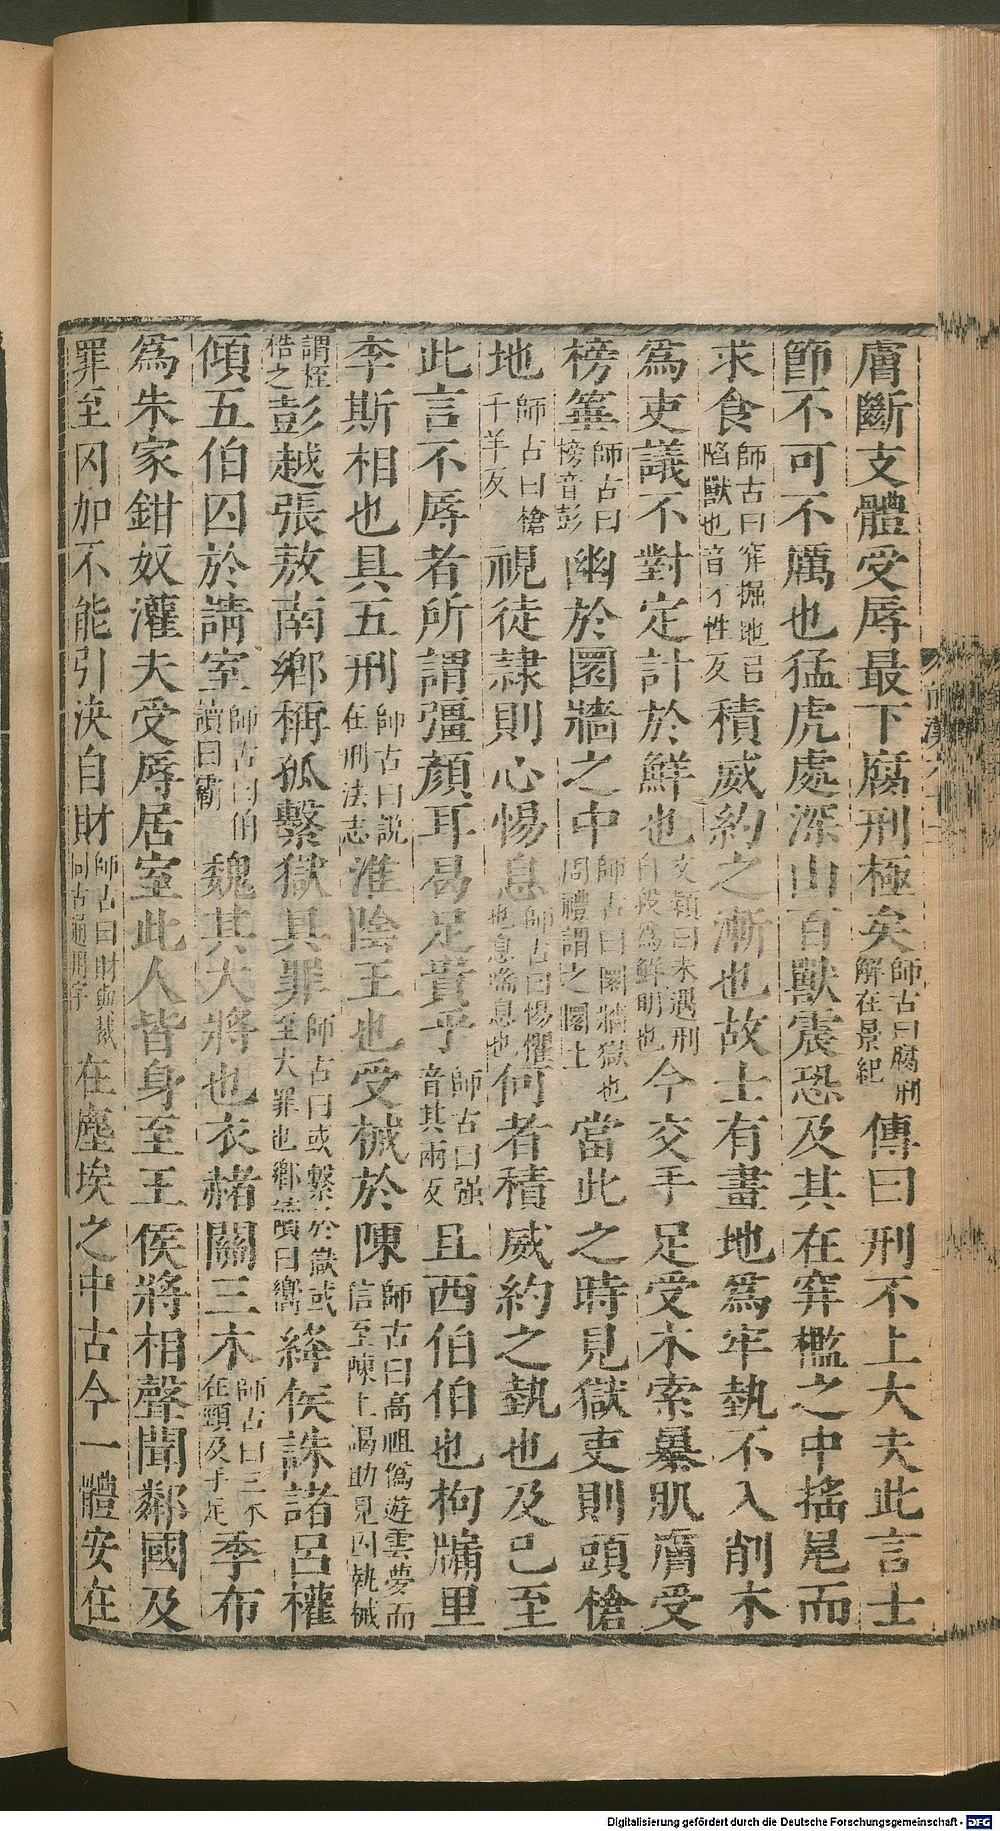 膚斷支體受辱最下腐刑極矣師古曰腐刑解在景紀傳曰刑不上大夫此言士
節不可不厲也猛虎處深山百獸震恐及其在穽檻之中搖尾而
求食師古曰穽掘地以陷獸也音才性反積威約之漸也故士有畫地爲牢埶不入削木
爲吏議不對定計於鮮也文穎曰未遇刑自殺爲鮮明也今交手足受木索暴肌膚受
榜箠師古曰榜音彭幽於圜牆之中師古曰圜牆獄也周禮謂之圜土當此之時見獄吏則頭槍
地師古曰槍千羊反視徒隸則心惕息師古曰惕懼也息喘息也何者積威約之埶也及已至
此言不辱者所謂彊顏耳曷足貴乎師古曰强音其兩反且西伯伯也拘牖里
李斯相也具五刑師古曰說在刑法志淮陰王也受械於陳師古曰高祖僞遊雲夢而信至陳上謁即見囚執械
謂桎梏之彭越張敖南鄉稱孤繫獄具罪師古曰或繫於獄或至大罪也鄉讀曰嚮絳侯誅諸呂權
傾五伯囚於請室師古曰伯讀曰霸魏其大將也衣赭關三木師古曰三木在頸及手足季布
爲朱家鉗奴灌夫受辱居室此人皆身至王侯將相聲聞鄰國及
罪至罔加不能引決自財師古曰財與裁同古通用字在塵埃之中古今一體安在
前漢六十二
Digitalisierung gefördert durch die Deutsche Forschungsgemeinschaft - DFG